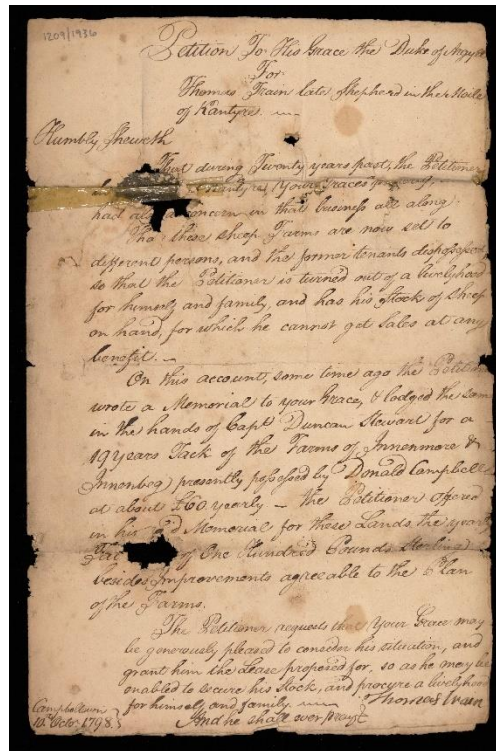 1209/1936
Petition To His Grace the Duke of Argyll
For
Thomas Train late Shepherd in the Moile
of Kantyre
Humbly Sheweth
That during Twenty years past, the Petitioner
Your Graces property,
had a concern in that business all along;
Tho' these sheep Farms are now set to
different persons, and the former tenants dispossessed
so that the Petitioner is turned out of a livelyhood
for himself and family, and has his Stock of Sheep
on hand, for which he cannot get sales at any
benefit.
On this account, some time ago the Petitioner
wrote a Memorial to your Grace, & lodged the same
in the hands of Capt Duncan Stewart for a
19 years Tack of the Farms of Innenmore &
Innenbeg presently possessed by Donald Campbell
at about £60 yearly — the Petitioner offered
in his Memorial for these Lands the yearly
of One Hundred Pounds Sterling
besides Improvements agreeable to the Plan
of the Farms.
The Petitioner requests that Your Grace may
be generously pleased to consider his situation, and
grant him the Lease proposed for, so as he may be
enabled to secure his Stock, and procure a livelyhood
for himself and family.
Thomas Train
And he shall ever pray
Campbeltown
10th Octor 1798